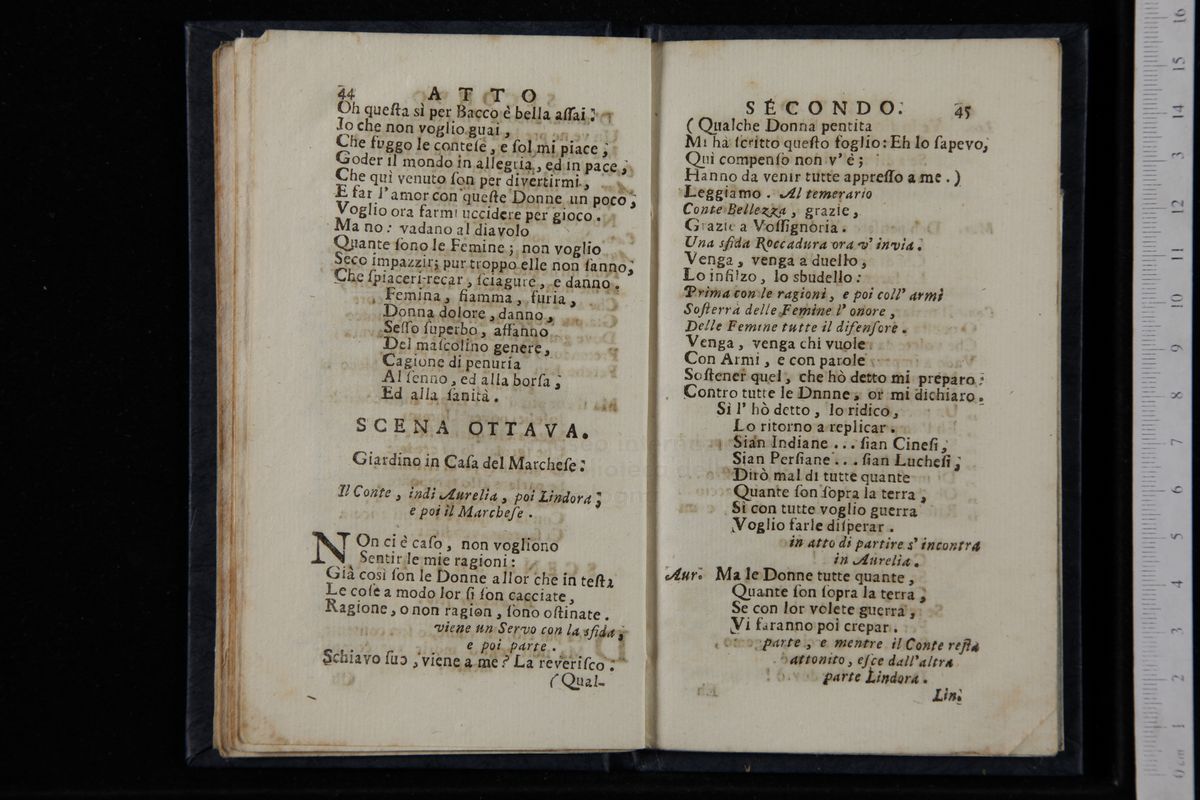 44 ATTO
Oh queſta sì per Bacco è bella aſſai:
Io che non voglio guai,
Che fuggo le conteſe, e ſol mi piace;
Goder il mondo in allegria, ed in pace;
Che quì venuto ſon per divertirmi,
E far l'amor con queſte Donne un poco;
Voglio ora farmi uccidere per gioco.
Ma no: vadano al diavolo
Quante ſono le Femine; non voglio
Seco impazzir; pur troppo elle non ſanno,
Che ſpiaceri-recar, ſciagure, e danno.
Femina, fiamma, furia,
Donna dolore, danno,
Seſſo ſuperbo, affanno
Del maſcolino genere,
Cagione di penuria
Al ſenno, ed alla borſa;
Ed alla ſanità.
SCENA OTTAVA.
Giardino in Caſa del Marcheſe.
Il Conte, indi Aurelia, poi Lindora;
e poi il Marcheſe.
NOn ci è caſo, non vogliono
Sentir le mie ragioni:
Già così ſon le Donne allor che in teſta
Le coſe a modo lor ſi ſon cacciate,
Ragione, o non ragion, ſono oſtinate.
viene un Servo con la sfida,
e poi parte.
Schiavo ſuo, viene a me? La reveriſco.
(Qual-
SECONDO. 45
(Qualche Donna pentita
Mi ha ſcritto queſto foglio: Eh lo ſapevo;
Quì compenſo non v'è;
Hanno da venir tutte appreſſo a me.)
Leggiamo. Al temerario
Conte Bellezza, grazie,
Grazie a Voſſignoria.
Una sfida Roccadura ora v'invia.
Venga, venga a duello,
Lo infilzo, lo sbudello:
Prima con le ragioni, e poi coll' armi
Soſterrà delle Femine l'onore,
Delle Femine tutte il difenſore.
Venga, venga chi vuole
Con Armi, e con parole
Soſtener quel, che hò detto mi preparo:
Contro tutte le Dnnne, or mi dichiaro.
Sì l'hò detto, lo ridico,
Lo ritorno a replicar.
Sian Indiane ... ſian Cineſi,
Sian Perſiane ... ſian Lucheſi;
Dirò mal di tutte quante
Quante ſon ſopra la terra,
Sì con tutte voglio guerra
Voglio farle diſperar.
in atto di partire s'incontra
in Aurelia.
Aur. Ma le Donne tutte quante,
Quante ſon ſopra la terra,
Se con lor volete guerra,
Vi faranno poi crepar.
parte, e mentre il Conte reſta
attonito, eſce dall'altra
parte Lindora.
Lin.
16
15
14
13
12
11
10
9
8
7
6
5
4
3
2
1
0 cm